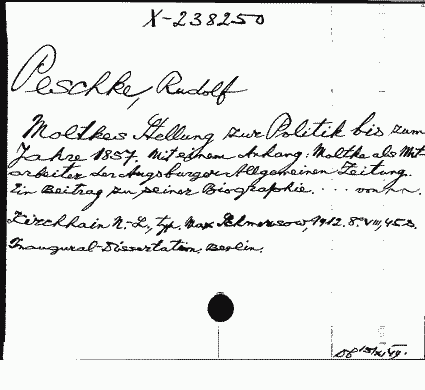 X-238250
Peschke, Rudolf
Moltkes Stellung zur Politik bis zum
Jahre 1857. Mit einem Anhang: Moltke als Mit-
arbeiter der Augsburger Allgemeinen Zeitung.
Ein Beitrag zu seiner Biographie. ... von
Kirchhain N.-L., typ. Max Schmersow, 1912. 8. VII, 45 S.
Inaugural-Dissertation. Berlin.